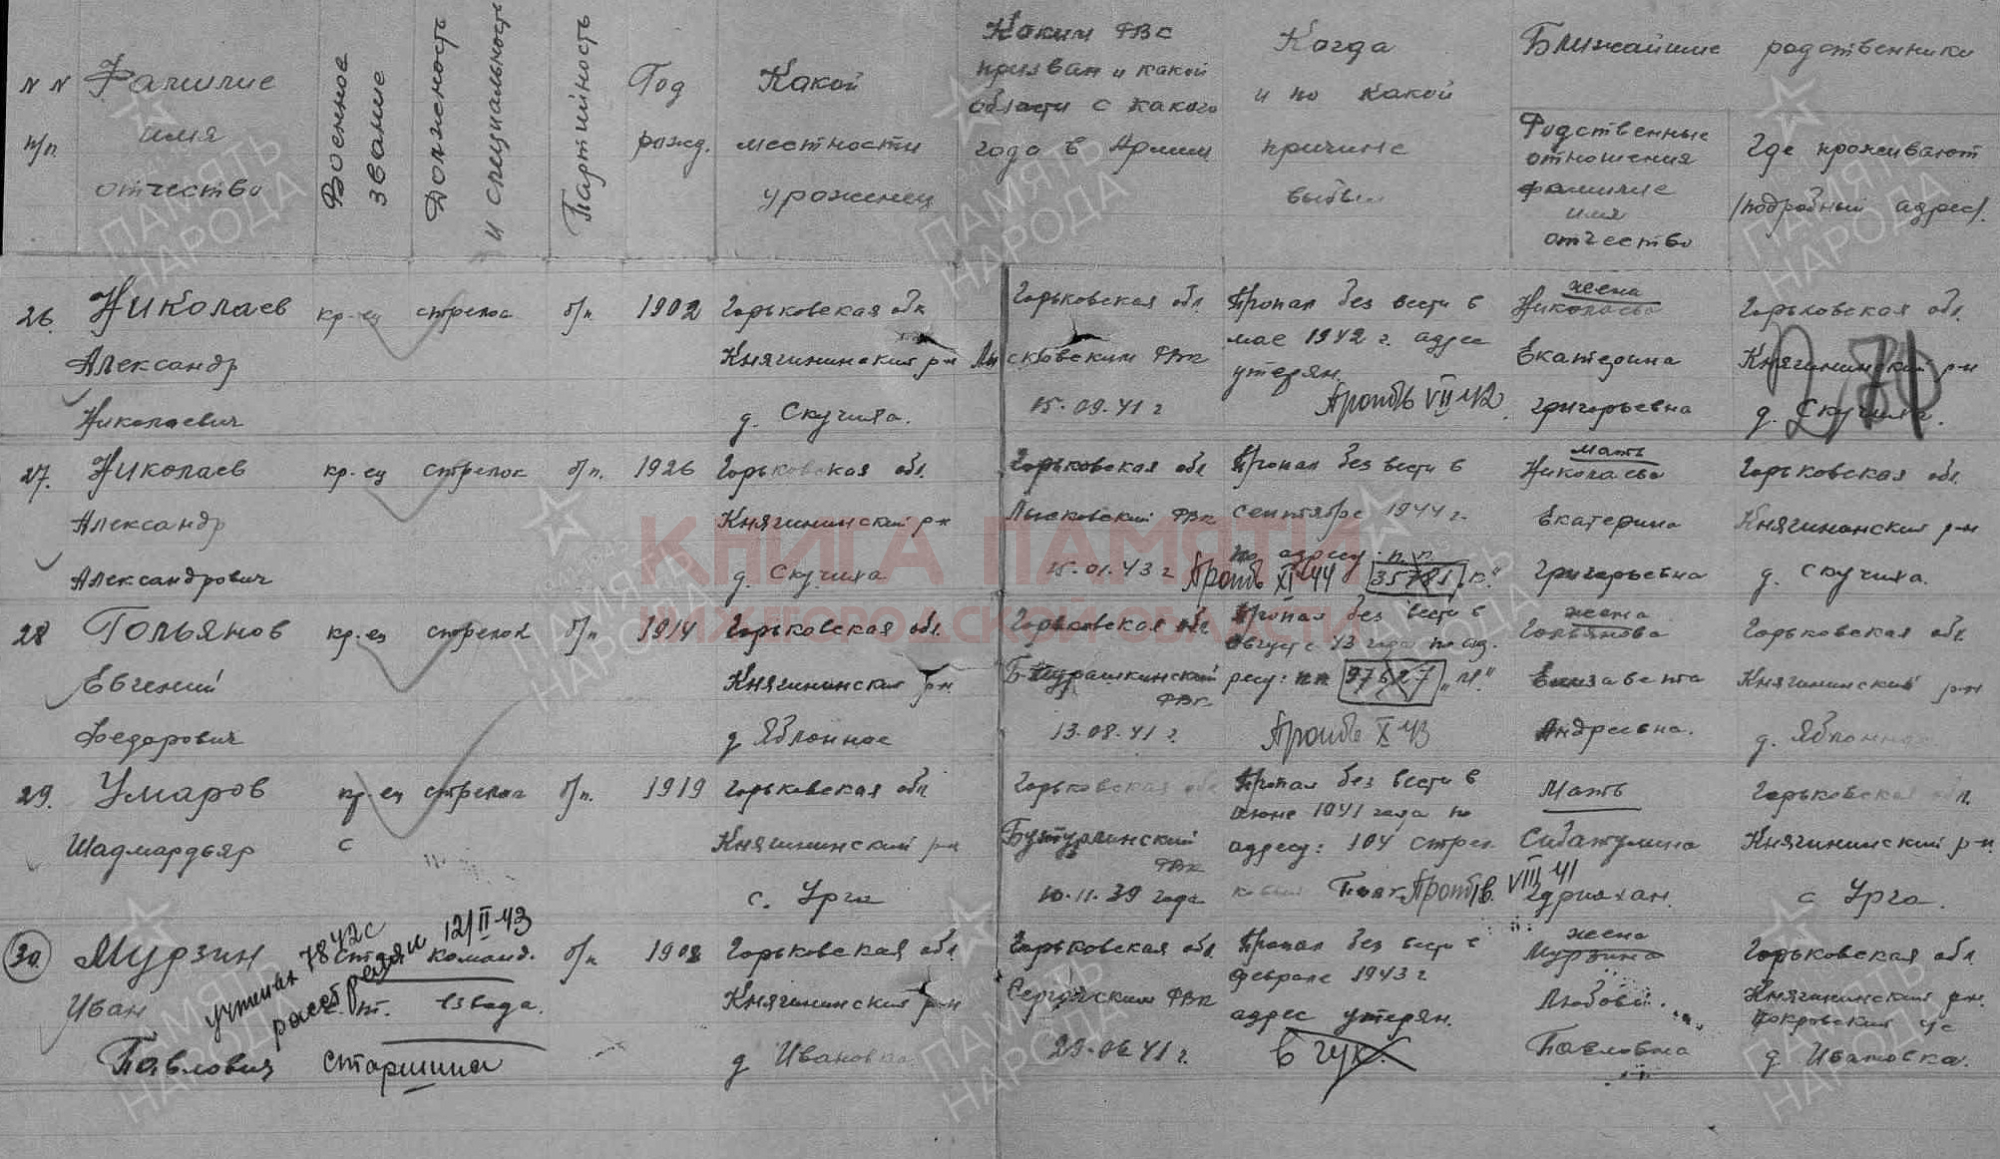 N N
п/п.
Фамилие
имя
отчество
Военное
звание
Должность
и специальность
Партийность
Год
рожд.
Какой
местности
уроженец
Каким РВК
призван и какой
области с какого
года в Армии
Когда
и по какой
причине
выбыл
Ближайшие родственники
Родственные
отношения
фамилие
имя
отчество
Где проживают
/подробный адрес/.
26. Николаев
Александр
Николаевич
кр-ец
стрелок
б/п
1902
Горьковская обл
Княгининский р-н
д. Скучиха.
Горьковская обл.
Лысковским РВК
15.09.41 г
Пропал без вести в
мае 1942 г. адрес
утерян
VII 42
жена
Николаева
Екатерина
Григорьевна
Горьковская обл.
Княгининский р-н
д. Скучиха.
27. Николаев
Александр
Александрович
кр-ец
стрелок
б/п.
1926
Горьковская обл.
Княгининский р-н
д. Скучиха
Горьковская обл
Лысковский РВК
15.01.43 г
Пропал без вести в
сентябре 1944 г.
по адресу: п.п
XI 44
35781
мать
Николаева
Екатерина
Григорьевна
Горьковская обл.
Княгининский р-н
д. Скучиха.
28 Гольянов
Евгений
Федорович
кр-ец
стрелок
б/п
1914
Горьковская обл.
Княгининский р-н
д Яблонное
Горьковская обл
РВК
13.08.41 г.
Пропал без вести в
августе 43 года по ад.
ресу: пп 97627 „И".
X 43
жена
Гольянова
Елизавета
Андреевна.
Горьковская обл.
Княгининский р-н
д. Яблонное
29. Умаров
Шадмардьяр
с
кр-ец
стрелок
б/п.
1919
Горьковская обл
Княгининский р-н
с. Урга
Горьковская обл
Бутурлинский
РВК
10.11.39 года
Пропал без вести в
июне 1941 года по
адресу: 104 стрел
ковый Полк
VIII 41
Мать
Сибатулина
Горьковская обл.
Княгининский р-н.
с Урга.
30 Мурзин
Иван
Павлович
учтен 7842с
расстрелян 12/II-43
старшина
команд.
взвода.
б/п
1908
Горьковская обл
Княгининский р-н
д Ивановка
Горьковская обл.
Сергачским РВК
29.06 41 г.
Пропал без вести в
феврале 1943 г
адрес утерян.
в гук.
жена
Мурзина
Любовь
Павловна
Горьковская обл
Княгининский р-н.
Покровский с/с
д Ивановка.
КНИГА ПАМЯТИ
НИЖЕГОРОДСКОЙ ОБЛАСТИ
ПАМЯТЬ
НАРОДА